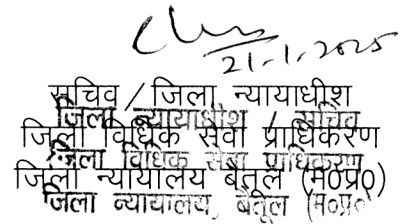 21-1-2025
सचिव / जिला न्यायाधीश
जिला न्यायाधीश / सचिव
जिला विधिक सेवा प्राधिकरण
जिला विधिक सेवा प्राधिकरण
जिला न्यायालय बैतूल (म0प्र0)
जिला न्यायालय, बैतूल (म0प्र0